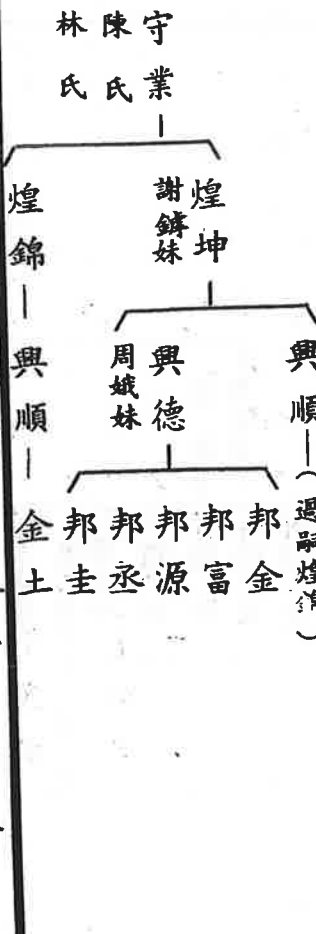 守業
陳氏
林氏
煌坤
謝妹
煌錦
興順(過嗣煌錦)
興德
周娥妹
興順
邦金
邦富
邦源
邦丞
邦圭
金土